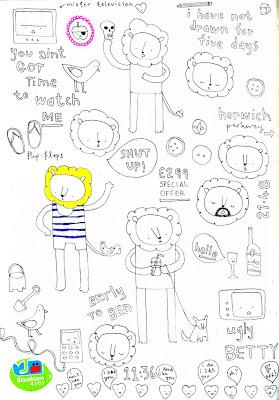 mister television
i have not
drawn for
five days
you aint
GOT
Time
to watch
ME
horwich
parkway
flip-flops
SHUT
UP!
£2.99
SPECIAL
OFFER
8.12
hello
EARLY
TO BED
ugly
BETTY
Braeburn
4101
11.36
i like you
i do
like you
oh!